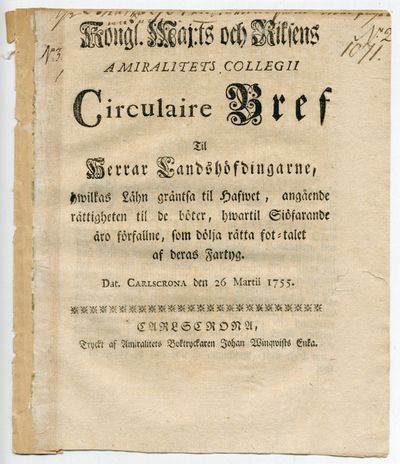 Kongl. Maj:ts och Riksens
N:3.
N:o 2
1071.
AMIRALITETS COLLEGII
Circulaire Bref
Til
Herrar Landshöfdingarne,
hwilkas Lähn gräntsa til Hafwet, angående
rättigheten til de böter, hwartil Siöfarande
äro förfallne, som dölja rätta fot-talet
af deras Fartyg.
Dat. CARLSCRONA den 26 Martii 1755.
CARLSCRONA,
Tryckt af Amiralitets Boktryckaren Johan Winqwists Enka.